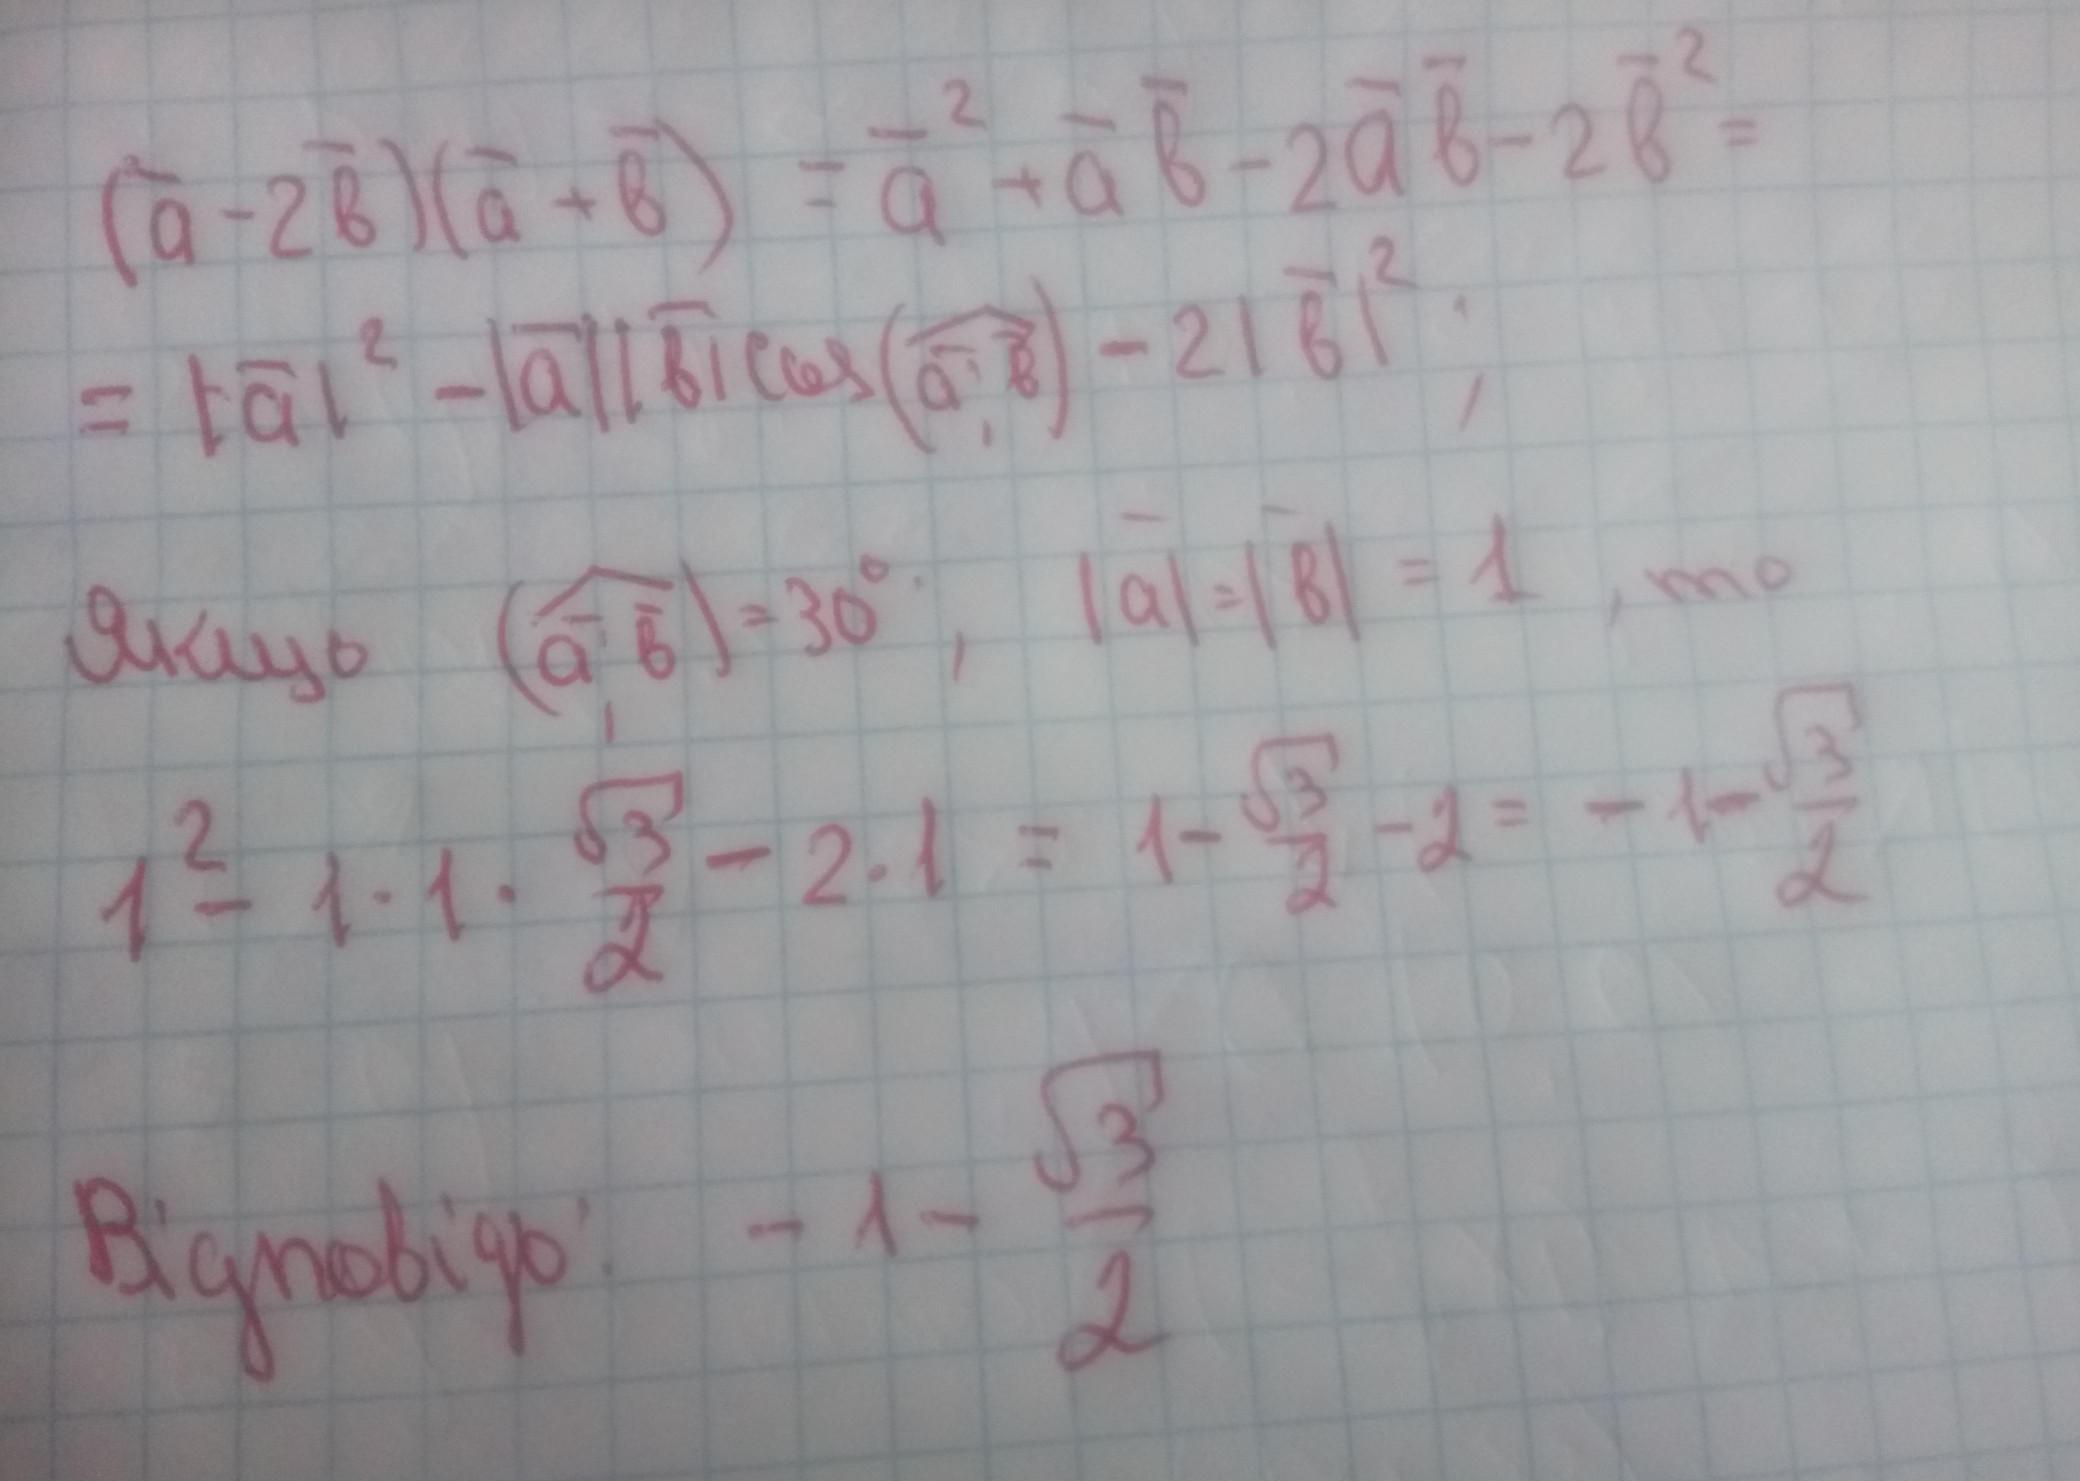 (a̅ - 2b̅)(a̅ + b̅) = a̅² + a̅ b̅ - 2a̅ b̅ - 2b̅² =
= |a̅|² - |a̅||b̅| cos(a̅, b̅) - 2|b̅|²;
Якщо (a̅, b̅) = 30°, |a̅| = |b̅| = 1, то
1² - 1·1· √3/2 - 2·1 = 1 - √3/2 - 2 = -1 - √3/2
Відповідь: -1 - √3/2